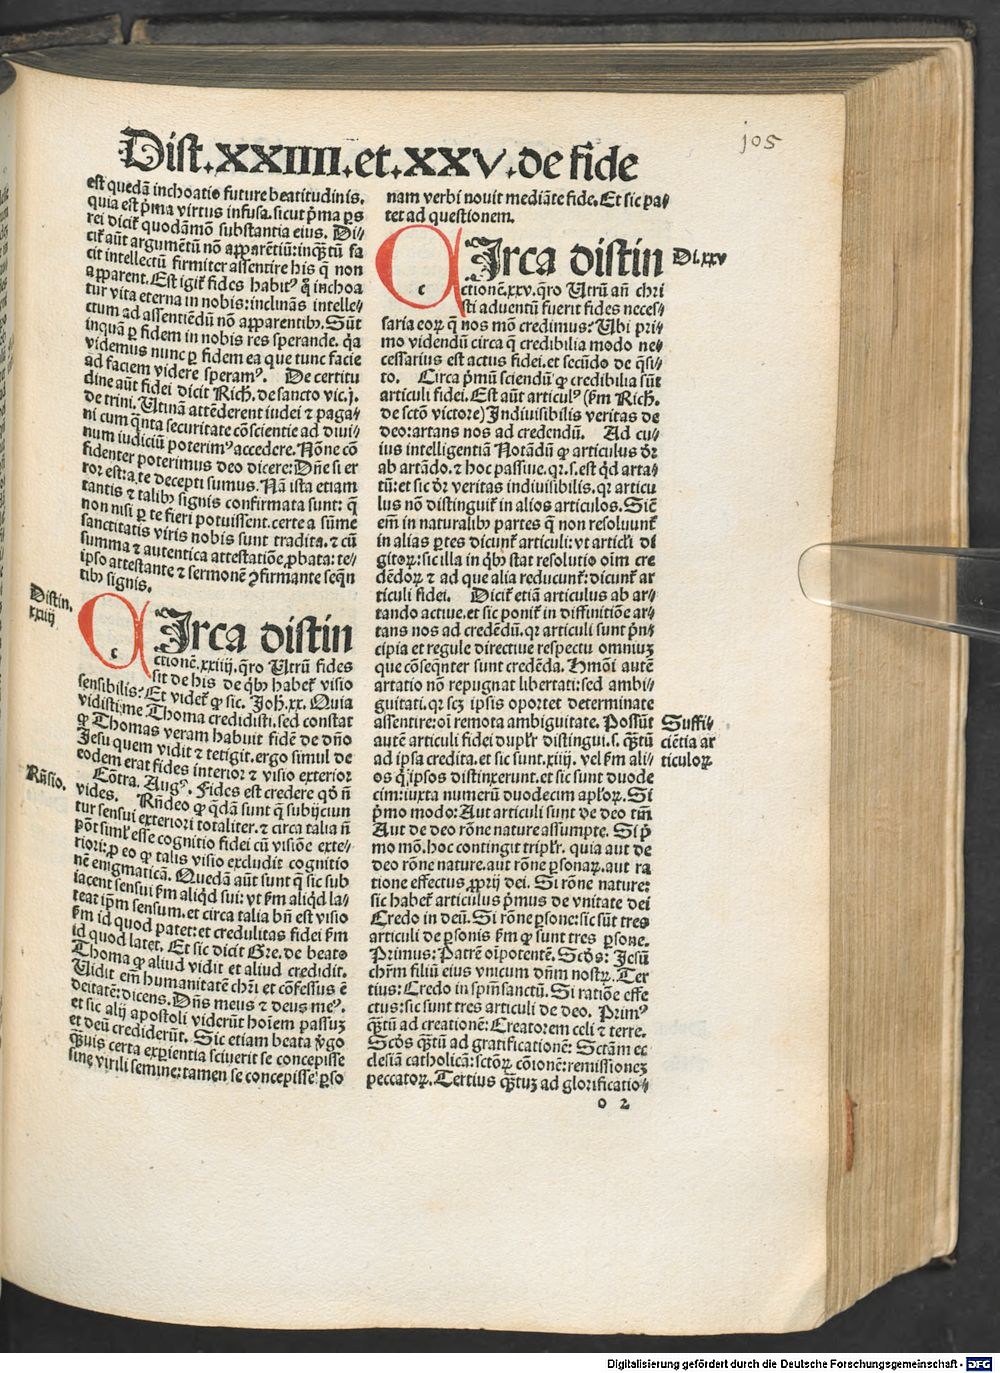 105
Dist.XXIIII.et.XXV.de fide
est quedā inchoatio future beatitudinis.
quia est p̄ma virtus infusa.sicut p̄ma ꝑs
rei diciť quodāmō substantia eius. Di-
ciť aūt argumētū nō apparētiū:inqꝫtū fa
cit intellectū firmiter assentire his q̄ non
apparent.Est igiť fides habitꝰ q̇ inchoa
tur vita eterna in nobis:inclināns intelle-
ctum ad assentiēdū nō apparentibꝫ. Sūt
inquā ꝑ fidem in nobis res sperande. q̇a
videmus nunc ꝑ fidem ea que tunc facie
ad faciem videre speramꝰ. De certitu
dine aūt fidei dicit Rich. de sancto vic.j.
de trini. Utinā attēderent iudei ⁊ paga-
ni cum q̄nta securitate cōscientie ad diui-
num iudiciū poterimꝰ accedere. Nōne cō
fidenter poterimus deo dicere: Dn̄e si er
ror est: a te decepti sumus. Nā ista etiam
tantis ⁊ talibꝫ signis confirmata sunt: q̄
non nisi ꝑ te fieri potuissent.certe a sūme
sanctitatis viris nobis sunt tradita. ⁊ cū
summa ⁊ autentica attestatiōe ꝓbata: te-
ipso attestante ⁊ sermonē ꝯfirmante seq̄n
tibꝫ signis.
Distin.
xxiiij
c
CIrca distin
ctionē.xxiiij.q̄ro Utrū fides
sit de his de q̇bꝫ habeť visio
sensibilis: Et videť ꝙ sic. Joh.xx. Quia
vidisti me Thoma credidisti.sed constat
ꝙ Thomas veram habuit fidē de dn̄o
Jesu quem vidit ⁊ tetigit.ergo simul de
eodem erat fides interior ⁊ visio exterior
Cōtra. Augꝰ. Fides est credere qđ n̄
vides. Rn̄deo ꝙ q̇dā sunt q̄ subijciun
Rn̄sio.
tur sensui exteriori totaliter. ⁊ circa talia n̄
pōt simľ esse cognitio fidei cū visiōe exte-
riori: ꝓ eo ꝙ talis visio excludit cognitio
nē enigmaticā. Quedā aūt sunt q̄ sic sub
iacent sensui ẜm aliq̇d sui: vt ẜm aliq̇d la-
teat ip̄m sensum.et circa talia bn̄ est visio
ẜm id quod patet: et credulitas fidei ẜm
id quod latet. Et sic dicit Gre. de beato
Thoma ꝙ aliud vidit et aliud credidit.
Uidit em̄ humanitatē chr̄i et cōfessus ē
deitatē: dicens. Dn̄s meus ⁊ deus meꝰ.
et sic alij apostoli viderūt hoīem passuꝫ
et deū crediderūt. Sic etiam beata v̇go
qꝫuis certa exꝑientia sciuerit se concepisse
sine virili semine: tamen se concepisse ꝑso
nam verbi nouit mediāte fide. Et sic pa-
tet ad questionem.
c
CIrca distin
Di.xxv
ctionē.xxv.q̄ro Utrū an̄ chri
sti aduentū fuerit fides neces-
saria eoꝝ q̄ nos mō credimus: Ubi pri-
mo videndū circa q̄ credibilia modo ne-
cessarius est actus fidei.et secūdo de q̄si-
to. Circa p̄mū sciendū ꝙ credibilia sūt
articuli fidei. Est aūt articulꝰ (ẜm Rich.
de sctō victore) Indiuisibilis veritas de
deo: artans nos ad credendū. Ad cu-
ius intelligentiā Notādū ꝙ articulus dr̄
ab artādo. ⁊ hoc passiue. qꝛ.s.est q̇d arta-
tū: et sic dr̄ veritas indiuisibilis. qꝛ articu
lus nō distinguiť in alios articulos. Sic̄
em̄ in naturalibꝫ partes q̄ non resoluunť
in alias ꝑtes dicunť articuli: vt articľi di
gitoꝝ: sic illa in q̇bꝫ stat resolutio oīm cre
dēdoꝝ ⁊ ad que alia reducunť: dicunť ar
ticuli fidei. Diciť etiā articulus ab ar-
tando actiue.et sic poniť in diffinitiōe ar-
tans nos ad credēdū. qꝛ articuli sunt p̄n-
cipia et regule directiue respectu omniuꝫ
que cōseq̄nter sunt credēda. Hmōi autē
artatio nō repugnat libertati: sed ambi-
guitati. qꝛ scꝫ ipsis oportet determinate
assentire: oī remota ambiguitate. Possūt
autē articuli fidei dupľr distingui.s. qꝫtū
ad ipsa credita.et sic sunt.xiiij. vel ẜm ali-
os q̇ ipsos distinxerunt.et sic sunt duode
cim: iuxta numerū duodecim apľoꝝ. Si
p̄mo modo: Aut articuli sunt de deo tm̄
Aut de deo rōne nature assumpte. Si p̄
mo mō. hoc contingit tripľr. quia aut de
deo rōne nature. aut rōne ꝑsonaꝝ. aut ra
tione effectus ꝓprij dei. Si rōne nature:
sic habeť articulus p̄mus de vnitate dei
Credo in deū. Si rōne ꝑsone: sic sūt tres
articuli de ꝑsonis ẜm ꝙ sunt tres ꝑsone.
Primus: Patrē oīpotentē. Scđs: Jesū
chr̄m filiū eius vnicum dn̄m nostꝝ. Ter
tius: Credo in spm̄sanctū. Si ratiōe effe
ctus: sic sunt tres articuli de deo. Primꝰ
qꝫtū ad creationē: Creatorem celi ⁊ terre.
Scđs qꝫtū ad gratificationē: Sctām ec
clesiā catholicā: sctōꝝ cōionē: remissioneꝫ
peccatoꝝ. Tertius qꝫtuꝫ ad glorificatio-
Suffi-
ciētia ar
ticuloꝝ
o 2
Digitalisierung gefördert durch die Deutsche Forschungsgemeinschaft - DFG